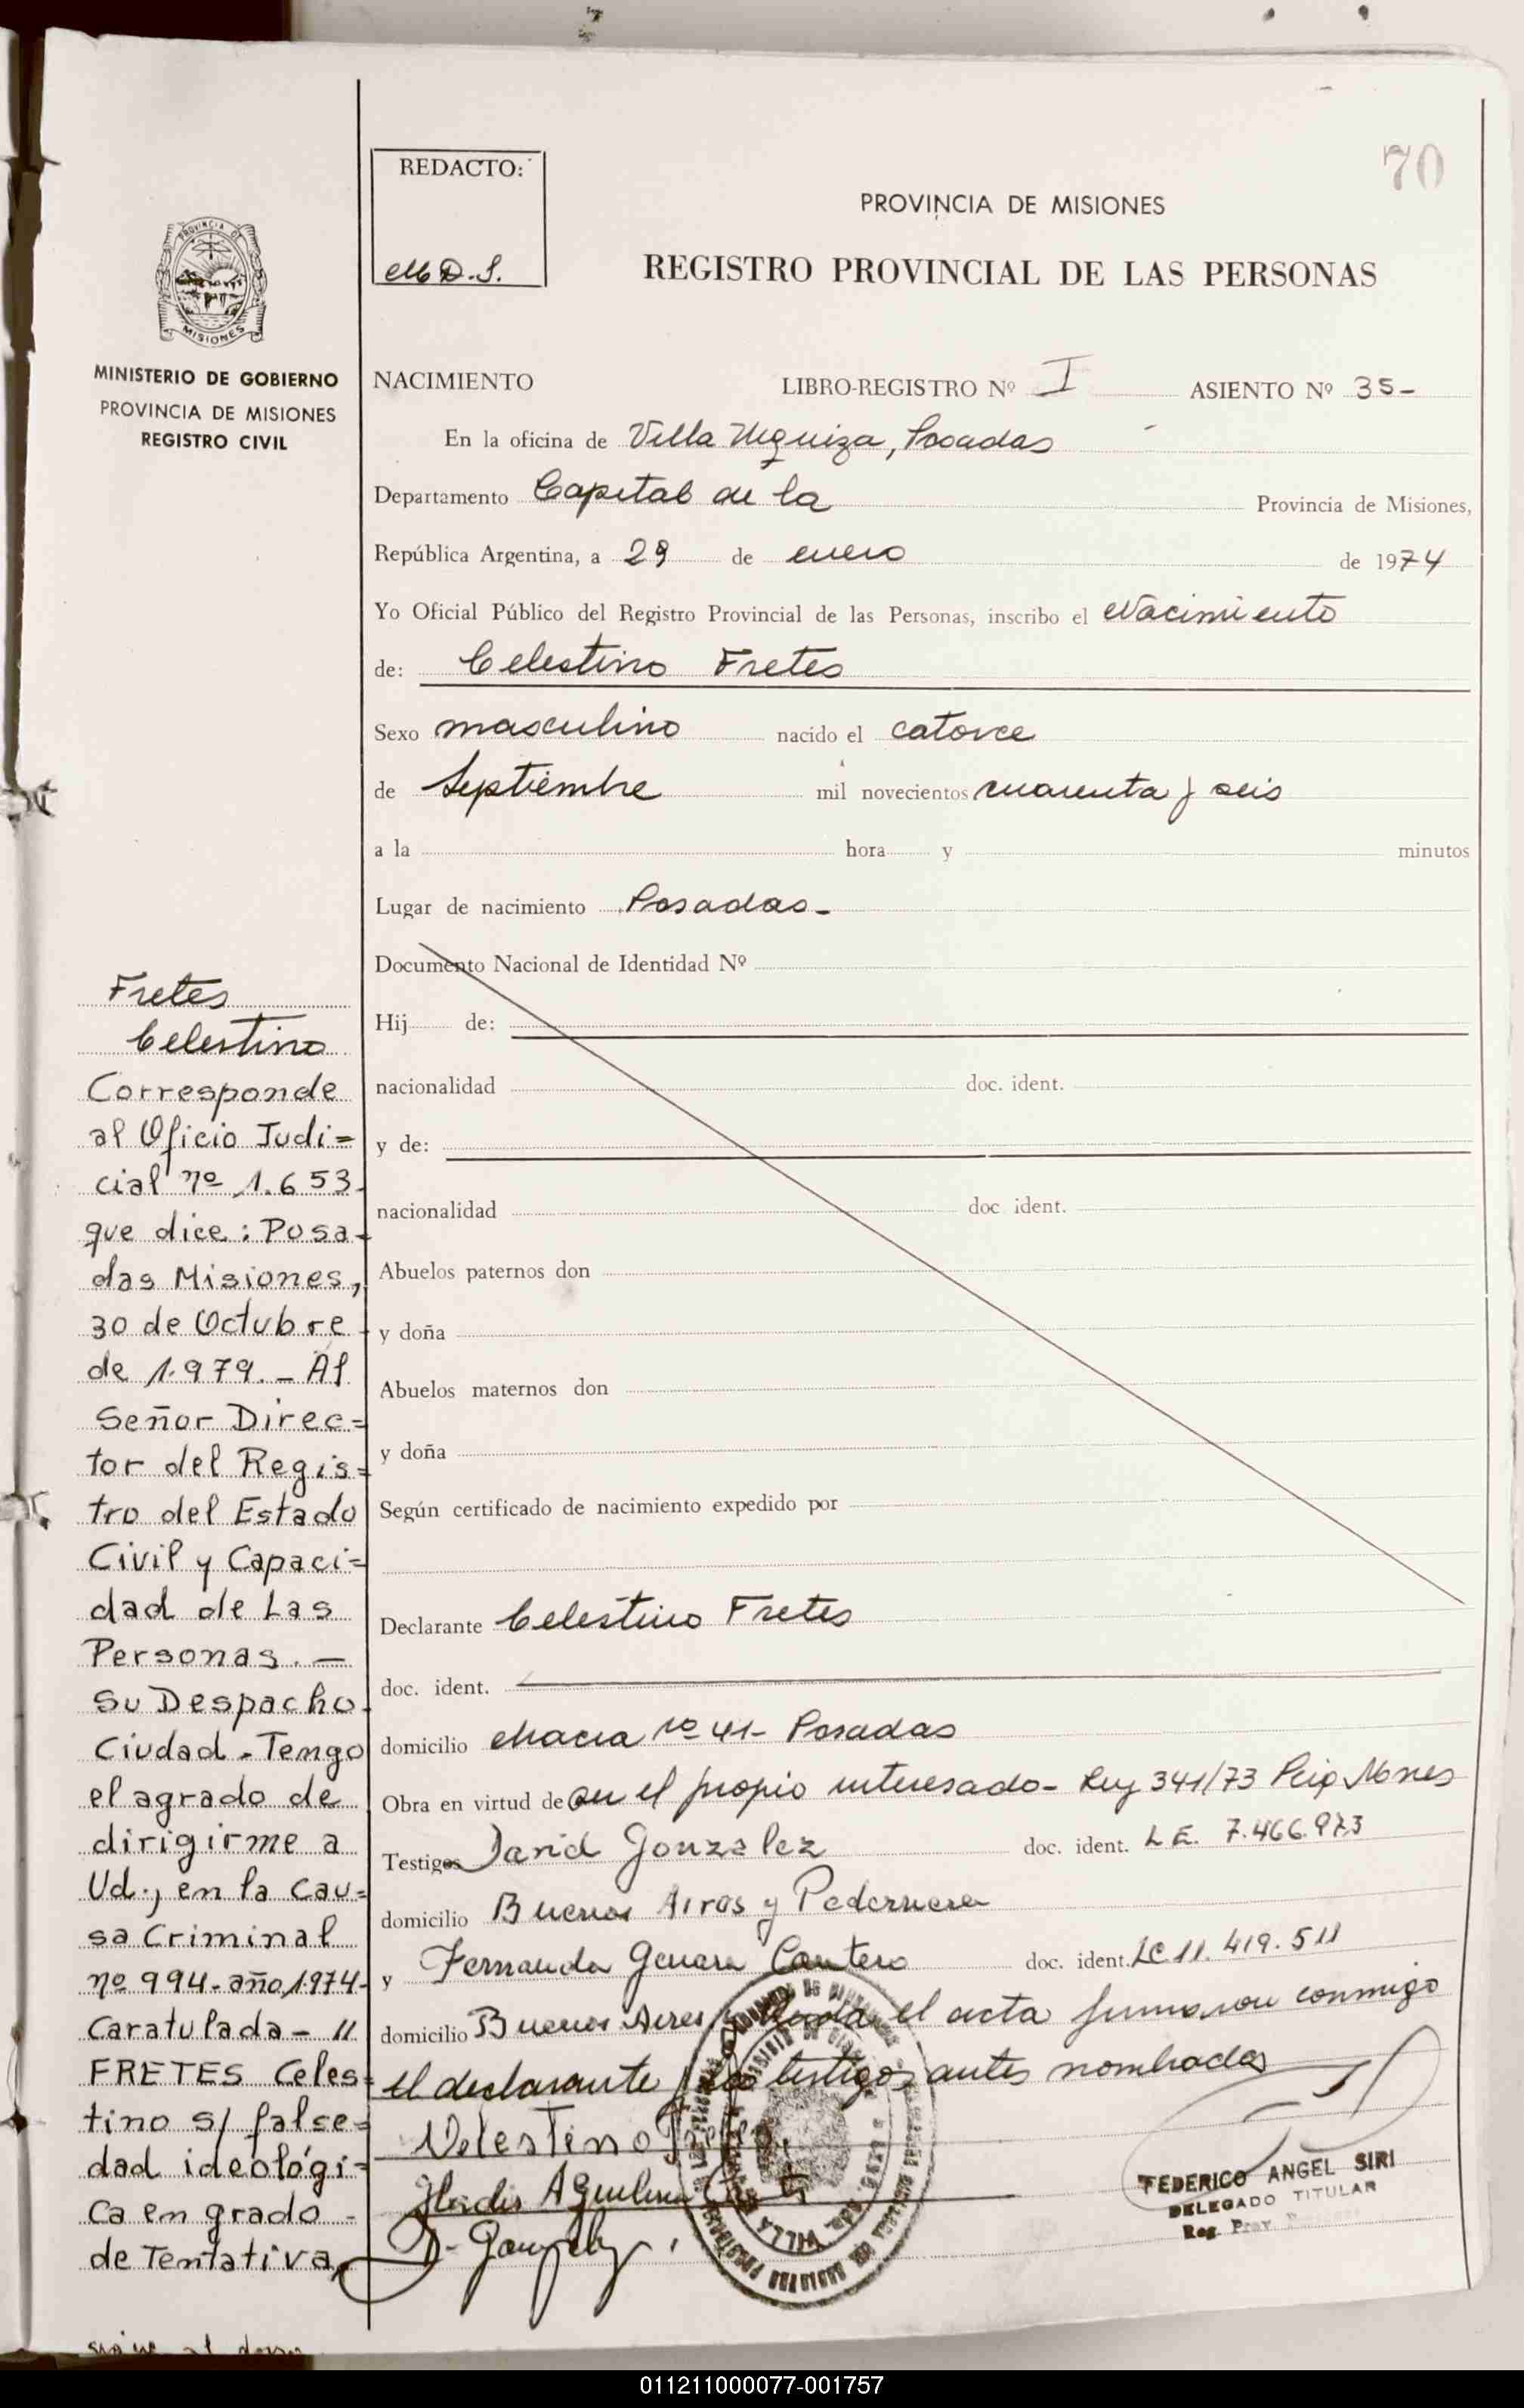 70
REDACTO:
M D. S.
PROVINCIA DE MISIONES
REGISTRO PROVINCIAL DE LAS PERSONAS
PROVINCIA DE
MISIONES
MINISTERIO DE GOBIERNO
PROVINCIA DE MISIONES
REGISTRO CIVIL
NACIMIENTO LIBRO-REGISTRO Nº I ASIENTO Nº 35-
En la oficina de Villa Urquiza, Posadas
Departamento Capital de la Provincia de Misiones,
República Argentina, a 29 de enero de 1974
Yo Oficial Público del Registro Provincial de las Personas, inscribo el Nacimiento
de: Celestino Fretes
Sexo masculino nacido el catorce
de Septiembre mil novecientos cuarenta y seis
a la hora y minutos
Lugar de nacimiento Posadas-
Documento Nacional de Identidad Nº
Hij de:
nacionalidad doc. ident.
y de:
nacionalidad doc. ident.
Abuelos paternos don
y doña
Abuelos maternos don
y doña
Según certificado de nacimiento expedido por
Declarante Celestino Fretes
doc. ident.
domicilio chacra nº 41- Posadas
Obra en virtud de ser el propio interesado- Ley 341/73
Testigos David Gonzalez doc. ident. L E. 7.466.973
domicilio Buenos Aires y Pedernera
y Fernanda Cantero doc. ident. LC 11.419.511
domicilio Buenos Aires el acta firmaron conmigo
el declarante y los testigos antes nombrados
Celestino Fretes
FEDERICO ANGEL SIRI
DELEGADO TITULAR
Reg. Prov.
Fretes
Celestino
Corresponde
al Oficio Judi=
cial nº 1.653.
que dice: Posa-
das Misiones,
30 de Octubre
de 1.979.- Al
Señor Direc=
tor del Regis=
tro del Estado
Civil y Capaci=
dad de Las
Personas. —
Su Despacho.
Ciudad - Tengo
el agrado de
dirigirme a
Ud., en la Cau=
sa Criminal
nº 994- año 1.974-
Caratulada - "
FRETES Celes=
tino s/ false=
dad ideológi=
ca en grado -
de Tentativa,
011211000077-001757